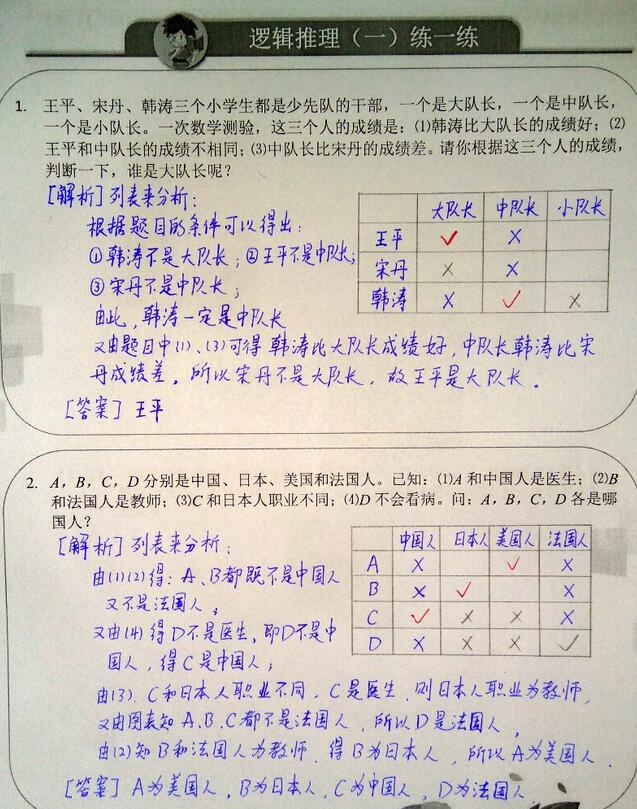 逻辑推理（一）练一练
1. 王平、宋丹、韩涛三个小学生都是少先队的干部，一个是大队长，一个是中队长，
一个是小队长。一次数学测验，这三个人的成绩是：(1)韩涛比大队长的成绩好；(2)
王平和中队长的成绩不相同；(3)中队长比宋丹的成绩差。请你根据这三个人的成绩，
判断一下，谁是大队长呢？
[解析] 列表来分析：
根据题目的条件可以得出：
①韩涛不是大队长；②王平不是中队长；
③宋丹不是中队长；
由此，韩涛一定是中队长
大队长 中队长 小队长
王平 ✓ ×
宋丹 × ×
韩涛 × ✓ ×
又由题目中(1)、(3)可得韩涛比大队长成绩好，中队长韩涛比宋
丹成绩差。所以宋丹不是大队长，故王平是大队长。
[答案] 王平
2. A，B，C，D 分别是中国、日本、美国和法国人。已知：(1)A 和中国人是医生；(2)B
和法国人是教师；(3)C 和日本人职业不同；(4)D 不会看病。问：A，B，C，D 各是哪
国人？
[解析] 列表来分析：
由(1)(2)得：A、B都既不是中国人
又不是法国人；
又由(4)得D不是医生，即D不是中
国人，得C是中国人；
中国人 日本人 美国人 法国人
A × ✓ ×
B × ✓ ×
C ✓ × × ×
D × × × ✓
由(3)．C和日本人职业不同，C是医生，则日本人职业为教师，
又由图表知A、B、C都不是法国人，所以D是法国人，
由(2)知B和法国人为教师，得B为日本人，所以A为美国人．
[答案] A为美国人，B为日本人，C为中国人，D为法国人